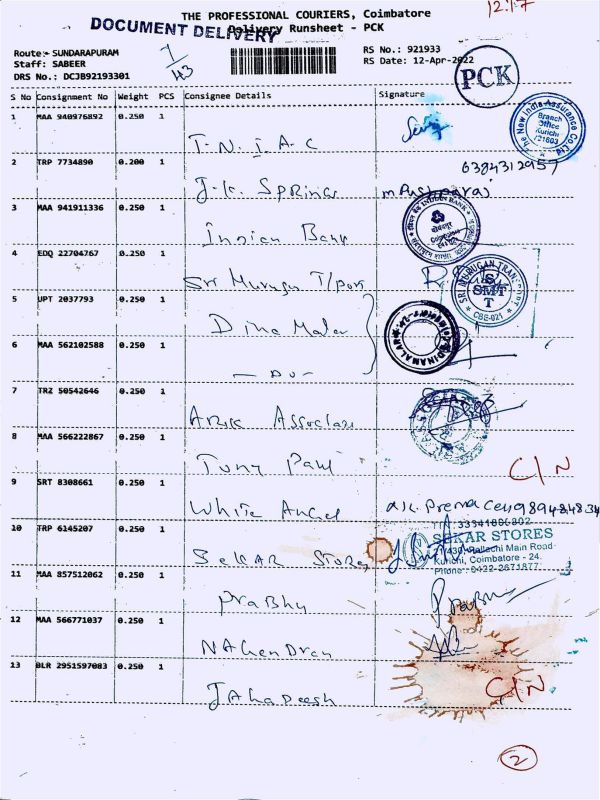 12:17
THE PROFESSIONAL COURIERS, Coimbatore
DOCUMENT DELIVERY
Delivery Runsheet - PCK
Route:- SUNDARAPURAM
Staff: SABEER
DRS No.: DCJB92193301
1/43
RS No.: 921933
RS Date: 12-Apr-2022
PCK
S No Consignment No Weight PCS Consignee Details Signature
1 MAA 940976892 0.250 1
T.N.I.A.C
The New India Assurance Co. Ltd
Branch Office
Kurichi
721603
2 TRP 7734890 0.200 1
J.K. Springs
6384312957
m Pushparaj
3 MAA 941911336 0.250 1
Indian Bank
INDIAN BANK
4 EDQ 22704767 0.250 1
Sri Murugan T/port
SRI MURUGAN TRANSPORT
SMT
CBE-021
5 UPT 2037793 0.250 1
Dina Malar
DINAMALAR
6 MAA 562102588 0.250 1
— DO —
7 TRZ 50542646 0.250 1
Associates
8 MAA 566222867 0.250 1
Tony Paul
C/N
9 SRT 8308661 0.250 1
White Angel
Prema
9894284834
10 TRP 6145207 0.250 1
SEKAR STORES
SEKAR STORES
Pollachi Main Road
Kurichi, Coimbatore - 24.
Phone: 0422-2671877
11 MAA 857512062 0.250 1
Prabhu
Prabhu
12 MAA 566771037 0.250 1
NAGENDRAN
13 BLR 2951597083 0.250 1
JAGADEESH
C/N
2